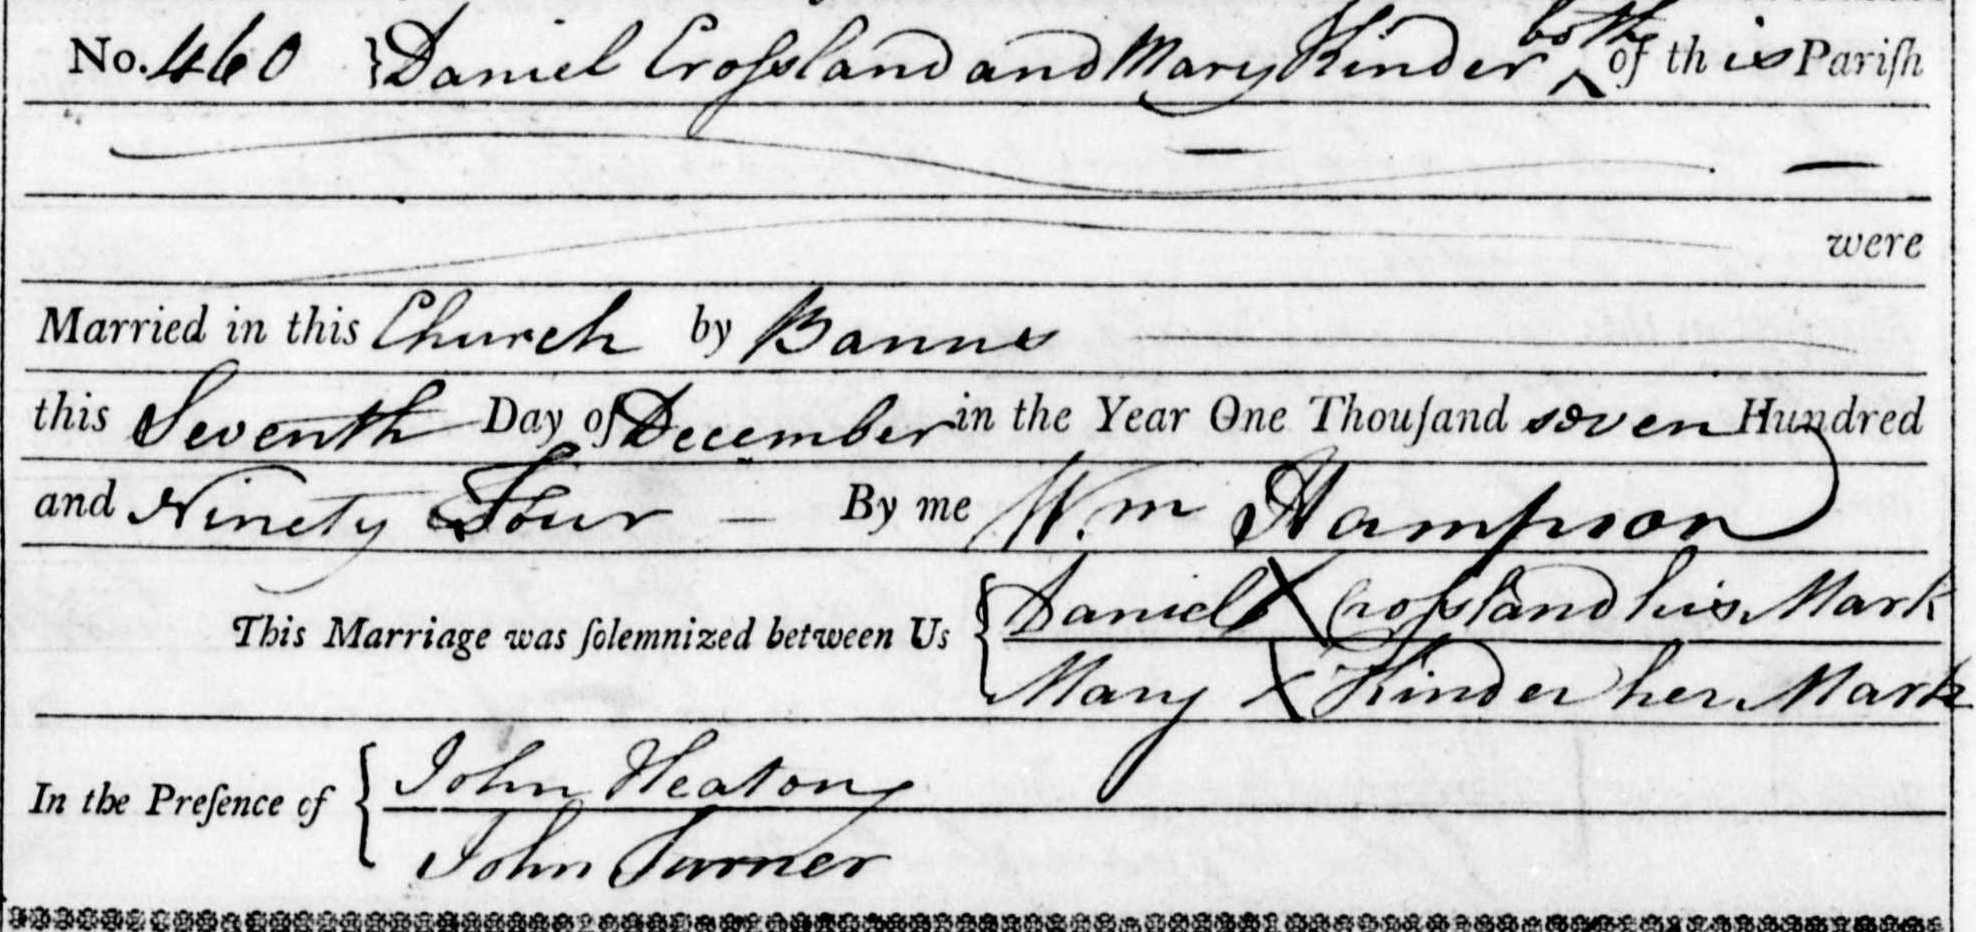 No. 460 } Daniel Croſsland and Mary Kinder both of this Pariſh
were
Married in this Church by Banns
this Seventh Day of December in the Year One Thouſand seven Hundred
and Ninety Four — By me Wm Hampson
This Marriage was ſolemnized between Us { Daniel X Croſsland his Mark
Mary X Kinder her Mark
In the Preſence of { John Heaton
John Turner